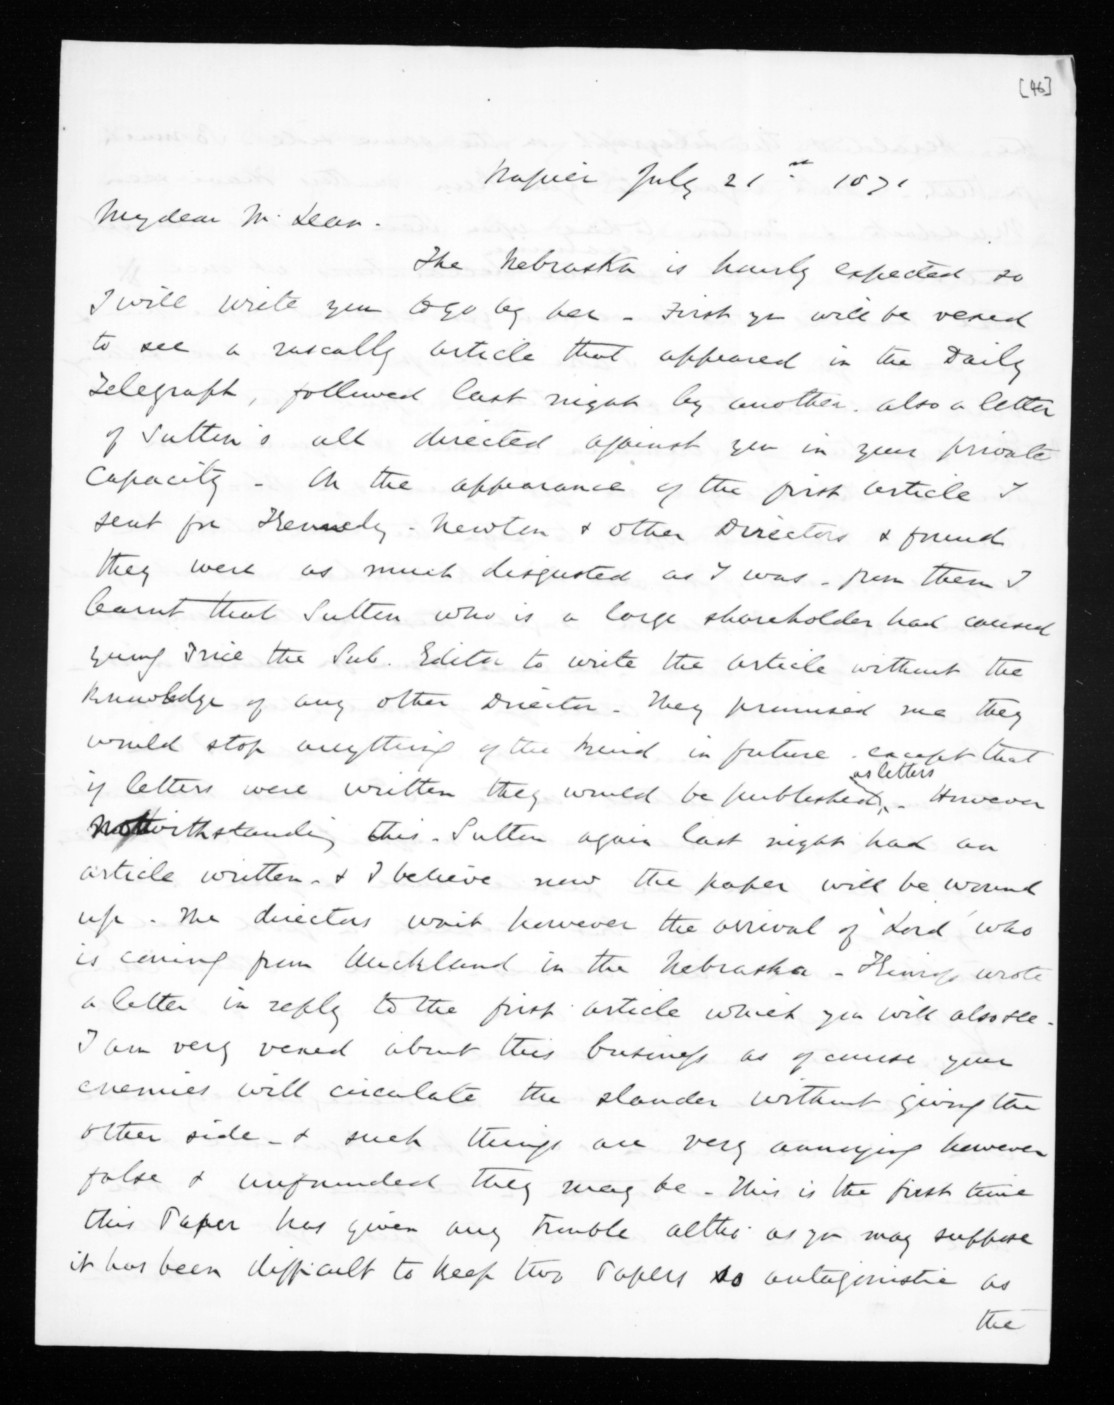 [46]
Napier July 21st 1871
My dear McLean.
The Nebraska is hourly expected so
I will write you to go by her - First you will be vexed
to see a rascally article that appeared in the Daily
Telegraph, followed last night by another. also a letter
of Sutton's all directed against you in your private
Capacity - On the appearance of the first article I
sent for Kennedy - Newton & other Directors & found
they were as much disgusted as I was - from them I
learnt that Sutton who is a large shareholder had caused
young Price the Sub. Editor to write the article without the
knowledge of any other Director - They promised me they
would stop anything of the kind in future - except that
as letters
if letters were written they would be published - However
Notwithstanding this - Sutton again last night had an
article written - & I believe now the paper will be wound
up - The directors wait however the arrival of 'Lord' who
is coming from Auckland in the Nebraska - wrote
a letter in reply to the first article which you will also see -
I am very vexed about this business as of course your
enemies will circulate the slander without giving the
other side - & such things are very annoying however
false & unfounded they may be - This is the first time
this Paper has given any trouble altho' as you may suppose
it has been difficult to keep two Papers so antagonistic as
the